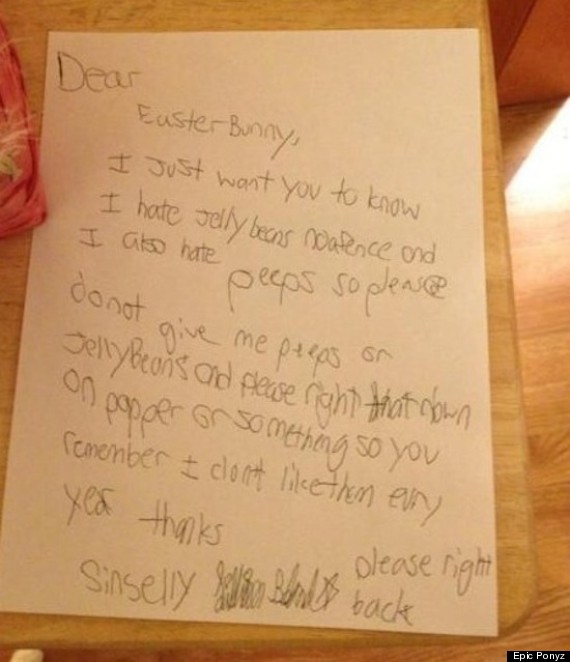 Dear
Easter Bunny,
I Just want you to know
I hate Jelly beans noafence and
I also hate peeps so please
do not give me peeps or
JellyBeans and please right that down
on papper or something so you
remember I dont like them evry
year thanks
please right
Sinselly back
Epic Ponyz